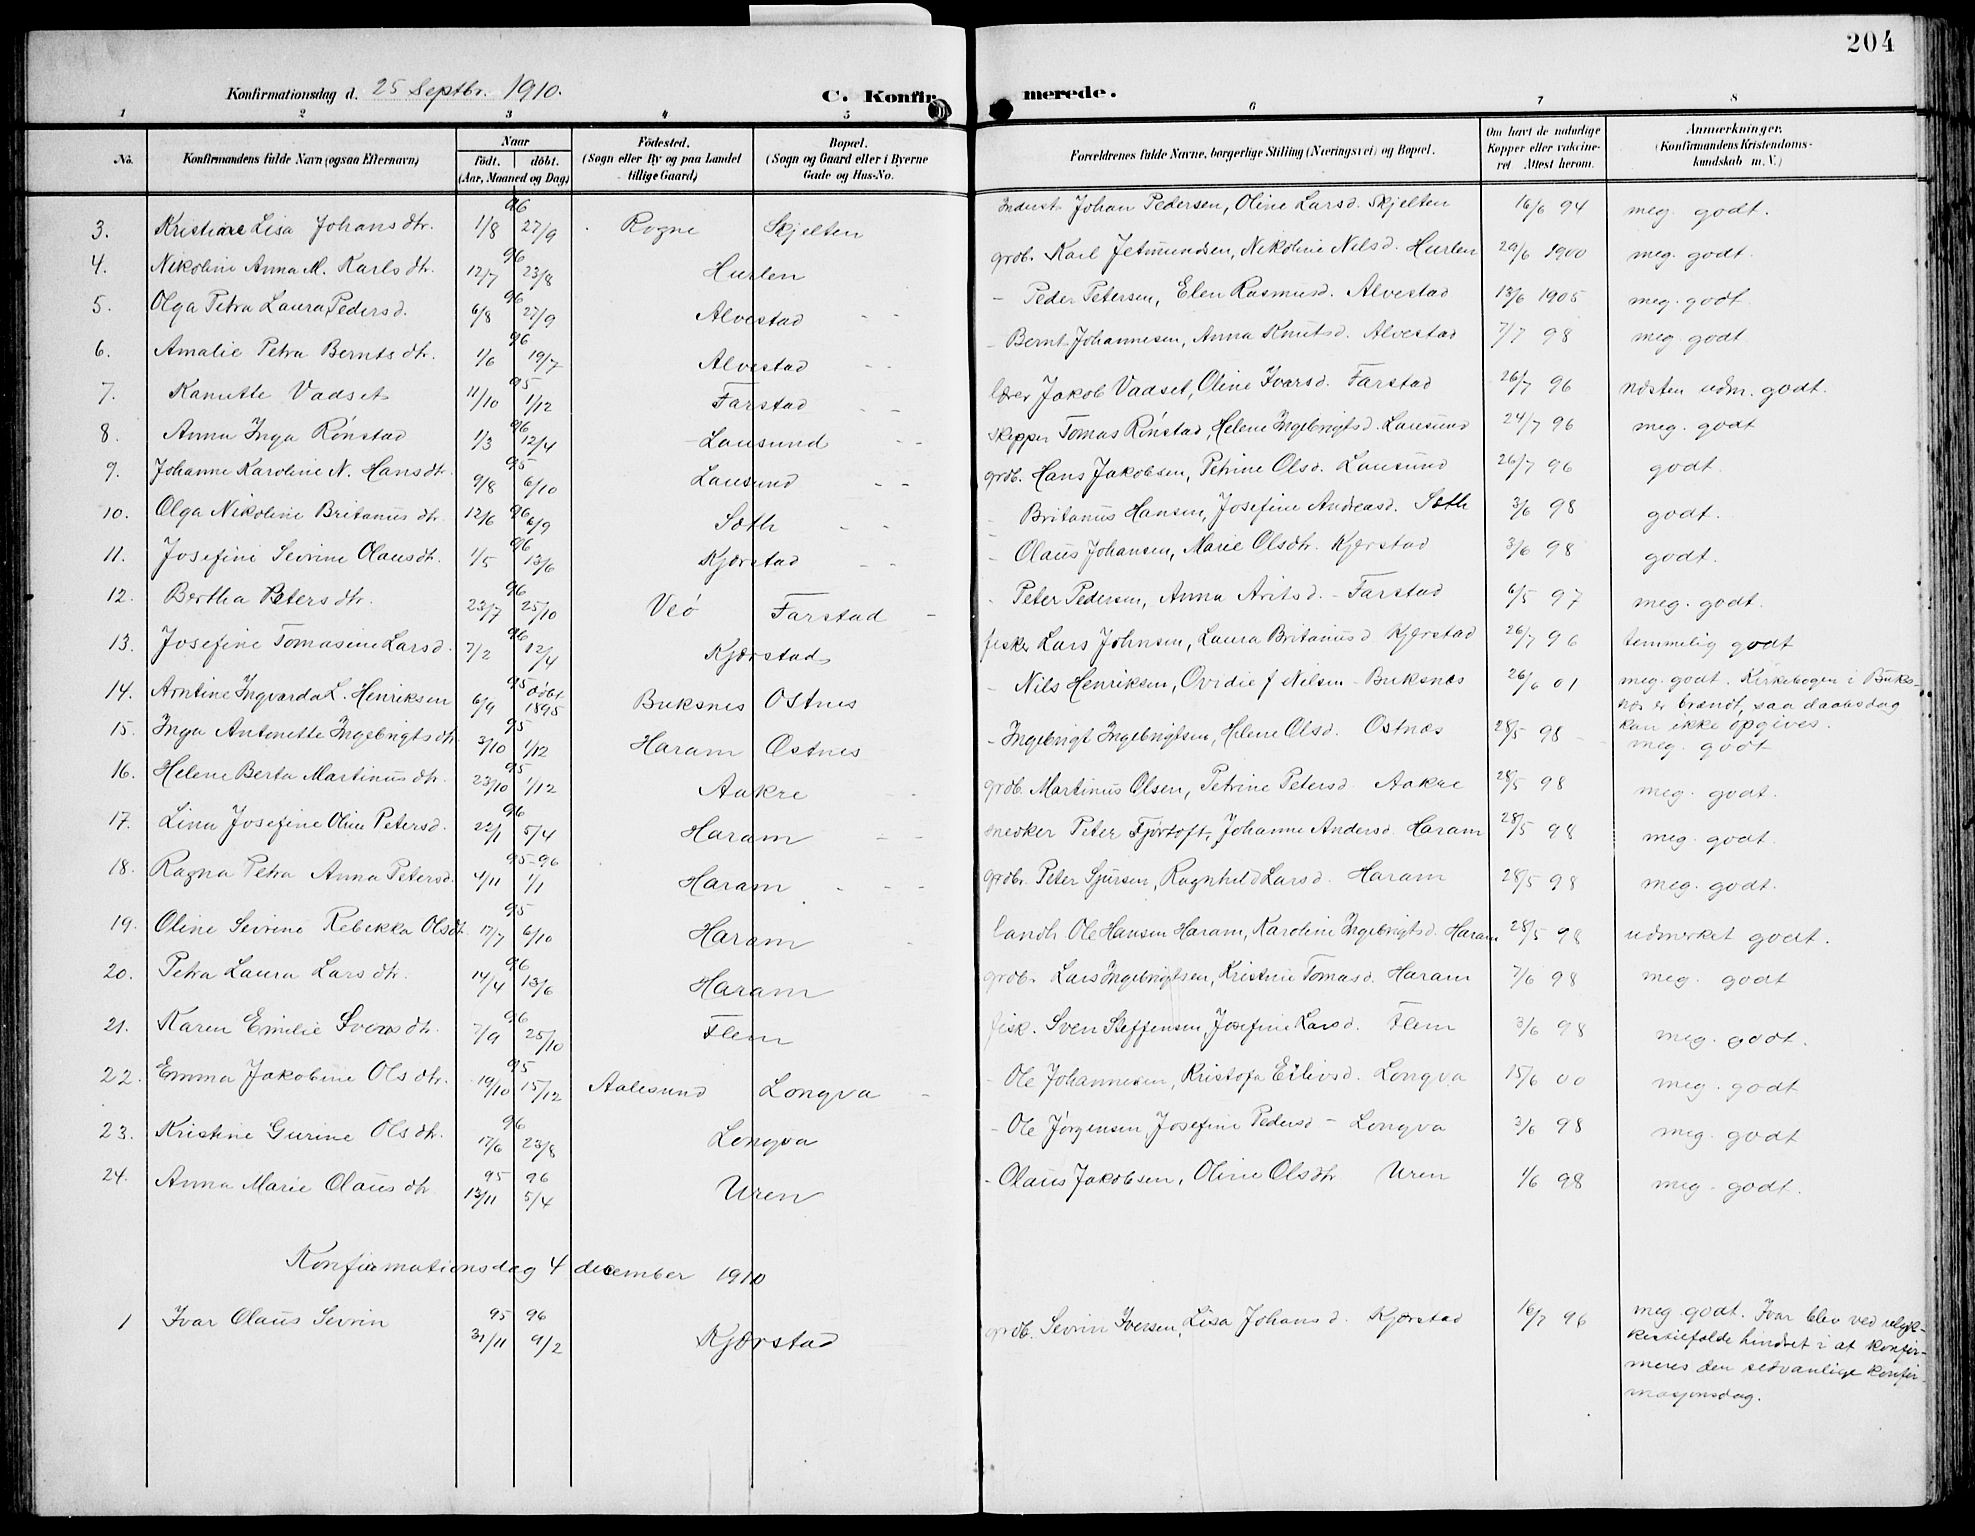 204
Konfirmationsdag d. 25 Septbr. 1910. C. Konfirmerede.
1 2 3 4 5 6 7 8
No. Konfirmandens fulde Navn (ogsaa Efternavn) Naar født. døbt. (Aar, Maaned og Dag) Fødested. (Sogn eller By og paa Landet tillige Gaard) Bopæl. (Sogn og Gaard eller i Byerne Gade og Hus-No. Forældrenes fulde Navne, borgerlige Stilling (Næringsvei) og Bopæl. Om havt de naturlige Kopper eller vaccineret Attest herom. Anmærkninger. (Konfirmandens Kristendomskundskab m. V.)
3. Lisa Johansdtr. 96 1/8 27/9 Rogne Skjelten Inderst Johan Pedersen, Oline Larsd. Skjelten 16/6 94 meg. godt.
4. Nikoline Anna M. Karlsdtr. 96 12/7 23/8 Hurlen grdb. Karl Jetmundsen, Nikoline Nilsd. Hurlen 29/6 1900 meg. godt.
5. Olga Petra Laura Pedersd. 96 6/8 27/9 Alvestad - - - Peder Petersen, Elen Rasmusd. Alvestad 13/6 1905 meg. godt
6. Amalie Petra Berntsdtr. 96 1/6 19/7 Alvestad - - - Bernt Johannesen, Anna Knutsd. Alvestad 7/7 98 meg. godt
7. Kanutte Vadset 95 11/10 1/12 Farstad - - lærer Jakob Vadset, Oline Ivarsd. Farstad 26/7 96 næsten udm. godt.
8. Anna Inga Rønstad 96 1/3 12/4 Lausund - - Skipper Tomas Rønstad, Helene Ingebrigtsd. Lausund 24/7 96 meg. godt
9. Johanne Karoline N. Hansdtr. 95 9/8 6/10 Lausund - - grdb. Hans Jakobsen, Petrine Olsd. Lausund 26/7 96 godt.
10. Olga Nikoline Britanusdtr. 96 12/6 6/9 Sæth - - - Britanus Hansen, Josefine Andreasd. Sæth 3/6 98 godt.
11. Josefine Sevrine Olausdtr. 96 1/5 13/6 Kjærstad - - - Olaus Johansen, Marie Olsdtr. Kjærstad 3/6 98 godt.
12. Bertha Petersdtr. 96 23/7 25/10 Veø Farstad - - Peter Pedersen, Anna - Farstad 6/5 97 meg. godt.
13. Josefine Tomasine Larsd. 96 7/2 12/4 Kjærstad fisker Lars Johnsen, Laura Britanusd Kjærstad 26/7 96 temmelig godt
14. Arntine Ingvarda L. Henriksen 95 6/9 døbt 1895 Buksnes Østnes - Nils Henriksen, Ovidie f Nilsen - Buksnæs 26/6 01 meg. godt. Kirkebogen i Buks-
næs er brændt, saa daabsdag
kan ikke opgives.
15. Inga Antonette Ingebrigtsdtr. 95 3/10 1/12 Haram Østnes - Ingebrigt Ingebrigtsen, Helene Olsd. Østnæs 28/5 98 - meg. godt
16. Helene Berta Martinusdtr. 95 23/10 1/12 Aakre - - grdb. Martinus Olsen, Petrine Petersd Aakre 28/5 98 meg. godt.
17. Lina Josefine Oline Petersd. 96 22/1 5/4 Haram - - snedker Peter Fjørtoft, Johanne Andersd. Haram 28/5 98 meg. godt.
18. Ragna Petra Anna Petersd. 95-96 4/11 1/1 Haram - - - grdbr. Peter Sjursen, Ragnhild Larsd. Haram 28/5 98 meg. godt.
19. Oline Sevrine Rebekka Olsdtr. 95 17/7 6/10 Haram - landh Ole Hansen Haram, Karoline Ingebrigtsd. Haram 28/5 98 udmerket godt.
20. Petra Laura Larsdtr. 96 14/4 13/6 Haram grdb. Lars Ingebrigtsen, Kristine Tomasd. Haram 7/6 98 meg. godt
21. Karen Emilie Svensdtr. 96 7/9 25/10 Flem fisk. Sven Steffensen, Josefine Larsd. Flem 3/6 98 meg. godt.
22. Emma Jakobine Olsdtr. 95 19/10 15/12 Aalesund Longva - - Ole Johannesen, Kristofa Eilivsd. Longva 15/6 00 meg. godt
23. Kristine Gurine Olsdtr. 96 17/6 23/8 Longva - Ole Jørgensen, Josefine Pedersd - Longva 3/6 98 meg. godt
24. Anna Marie Olausdtr 95 96 13/11 5/4 Uren - Olaus Jakobsen, Oline Olsdtr Uren 1/6 98 meg. godt.
Konfirmationsdag 4 december 1910
1 Ivar Olaus Sevrin 95 96 31/11 9/2 Kjærstad grdb. Sevrin Iversen, Lisa Johansd. Kjærstad 16/7 96 meg. godt. Ivar blev ved ulyk-
kestilfælde hindret i at konfir-
meres den sedvanlige konfir-
masjonsdag.